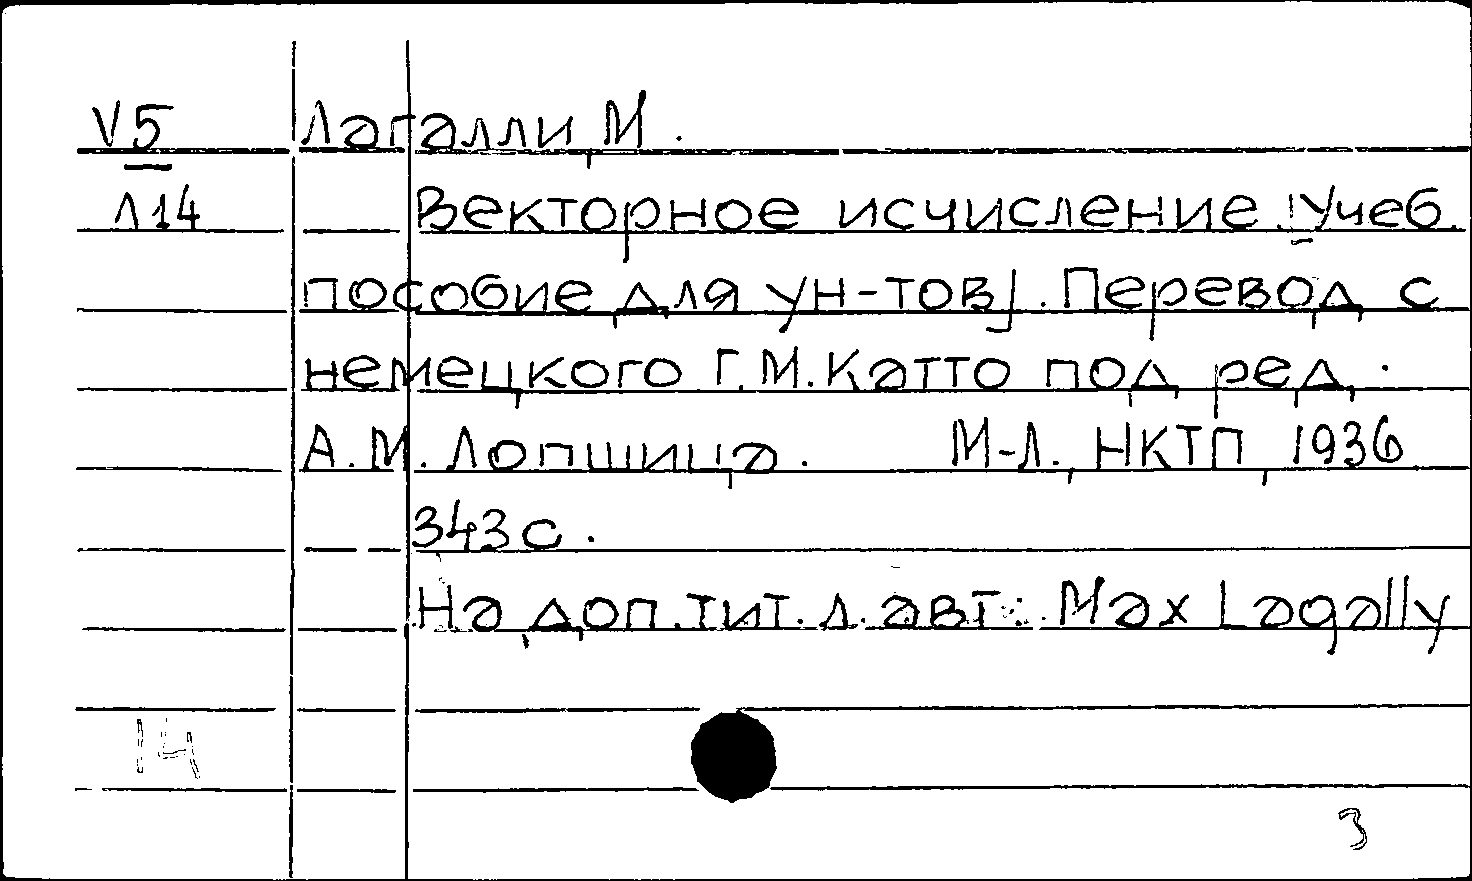 V5 Лагалли, М.
Л14 Векторное исчисление. [Учеб.
пособие для ун-тов]. Перевод с
немецкого Г.М. Катто под ред.
А.М. Лопшица. М-Л., НКТП, 1936
343 с.
На доп. тит. л. авт.: Max Lagally
14
3